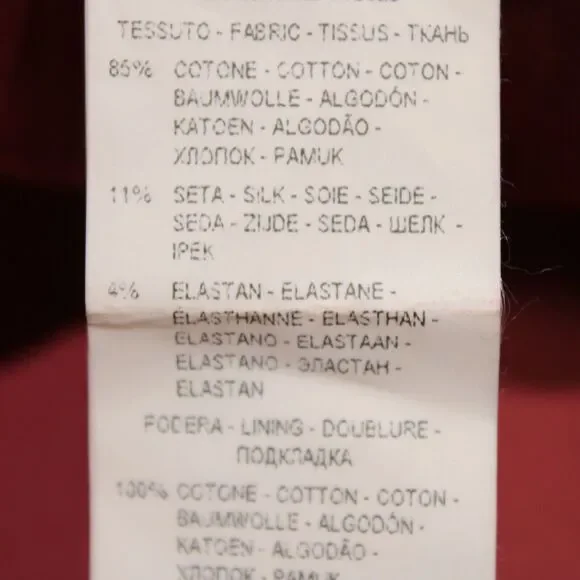 TESSUTO - FABRIC - TISSUS - ТКАНЬ
85% COTONE - COTTON - COTON -
BAUMWOLLE - ALGODÓN -
KATOEN - ALGODÃO -
ХЛОПОК - PAMUK
11% SETA - SILK - SOIE - SEIDE -
SEDA - ZIJDE - SEDA - ШЕЛК -
IPEK
4% ELASTAN - ELASTANE -
ÉLASTHANNE - ELASTHAN -
ELASTANO - ELASTAAN -
ELASTANO - ЭЛАСТАН -
ELASTAN
FODERA - LINING - DOUBLURE -
ПОДКЛАДКА
100% COTONE - COTTON - COTON -
BAUMWOLLE - ALGODÓN -
KATOEN - ALGODÃO -
ХЛОПОК - PAMUK